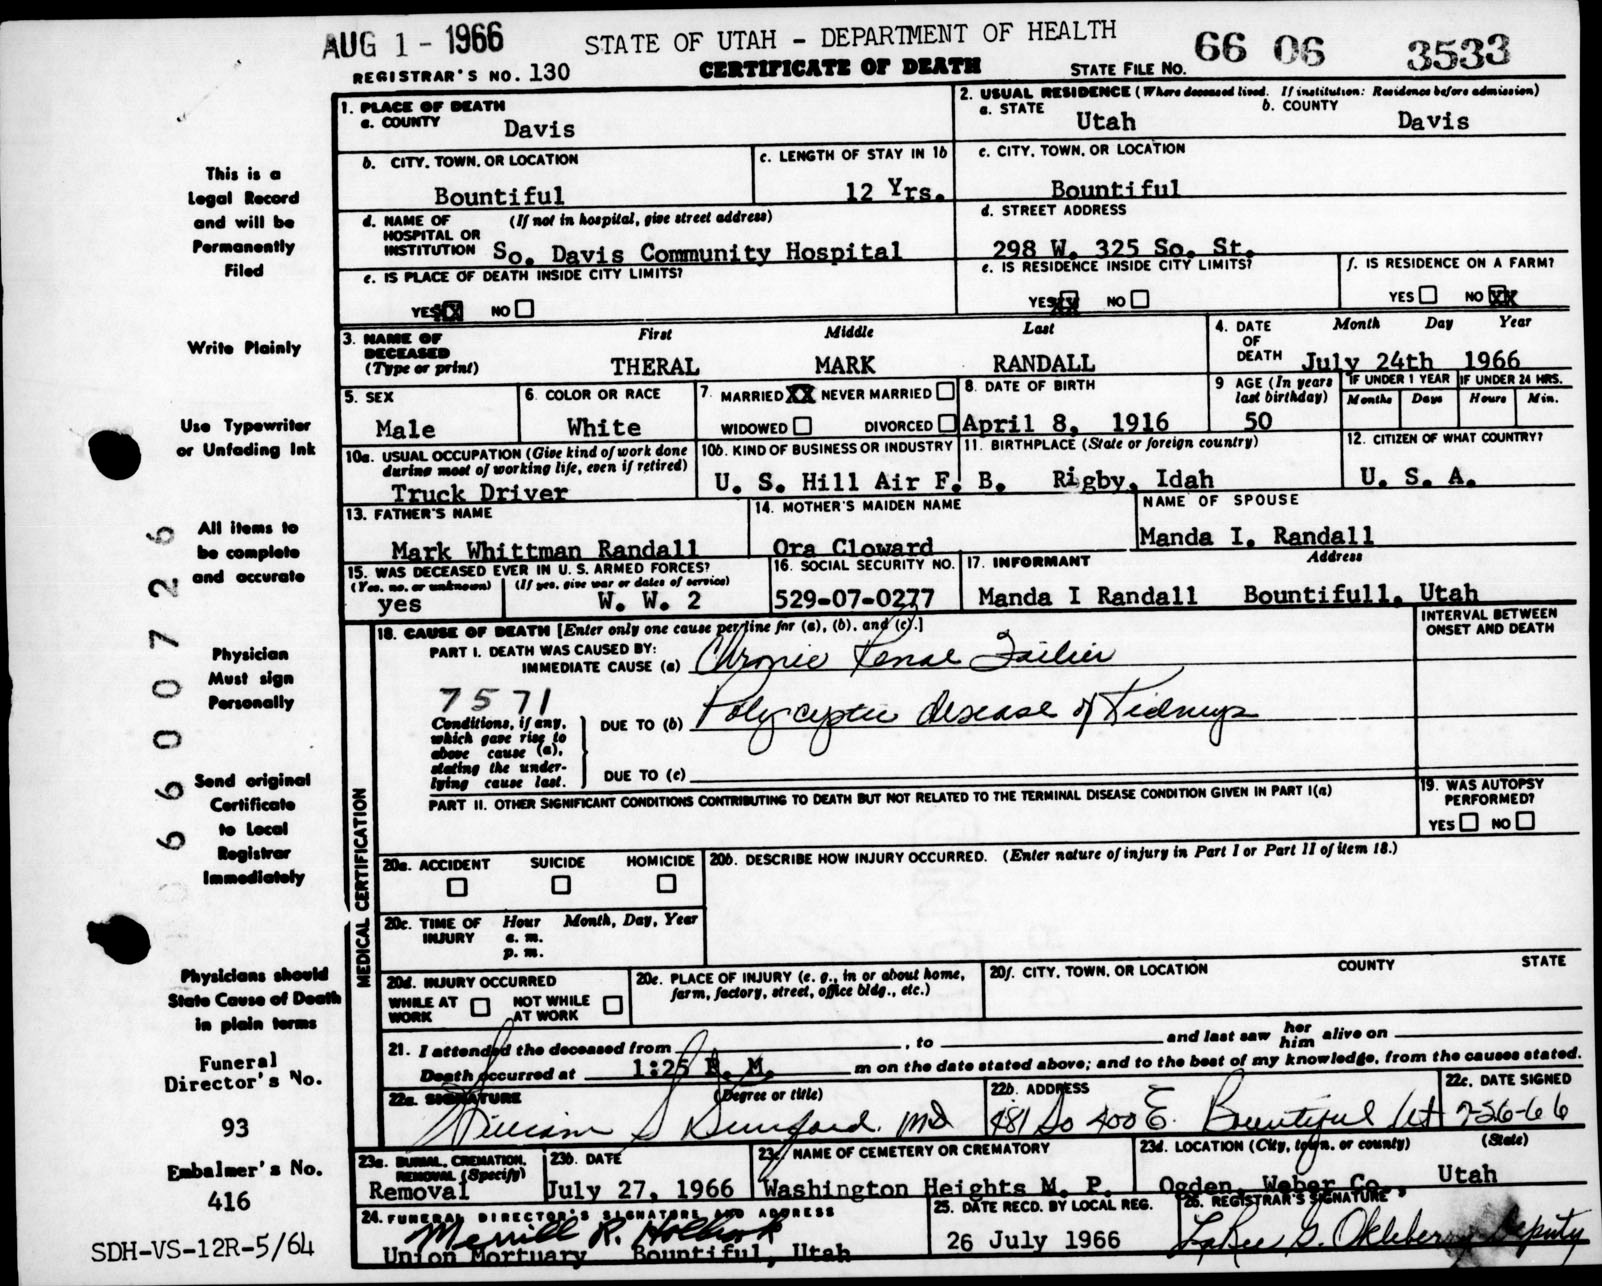 AUG 1 - 1966 STATE OF UTAH - DEPARTMENT OF HEALTH 66 06 3533
REGISTRAR'S NO. 130 CERTIFICATE OF DEATH STATE FILE NO.
1. PLACE OF DEATH
a. COUNTY Davis
2. USUAL RESIDENCE (Where deceased lived. If institution: Residence before admission)
a. STATE Utah b. COUNTY Davis
b. CITY, TOWN, OR LOCATION Bountiful
c. LENGTH OF STAY IN 1b 12 Yrs.
c. CITY, TOWN, OR LOCATION Bountiful
d. NAME OF HOSPITAL OR INSTITUTION (If not in hospital, give street address)
So. Davis Community Hospital
d. STREET ADDRESS
298 W. 325 So. St.
e. IS PLACE OF DEATH INSIDE CITY LIMITS?
YES XX NO
e. IS RESIDENCE INSIDE CITY LIMITS?
YES XX NO
f. IS RESIDENCE ON A FARM?
YES NO XX
3. NAME OF DECEASED (Type or print) First Middle Last
THERAL MARK RANDALL
4. DATE OF DEATH Month Day Year
July 24th 1966
5. SEX Male
6. COLOR OR RACE White
7. MARRIED XX NEVER MARRIED
WIDOWED DIVORCED
8. DATE OF BIRTH April 8, 1916
9 AGE (In years last birthday) 50
IF UNDER 1 YEAR Months Days
IF UNDER 24 HRS. Hours Min.
10a. USUAL OCCUPATION (Give kind of work done during most of working life, even if retired)
Truck Driver
10b. KIND OF BUSINESS OR INDUSTRY
U. S. Hill Air F. B.
11. BIRTHPLACE (State or foreign country)
Rigby, Idah
12. CITIZEN OF WHAT COUNTRY?
U. S. A.
13. FATHER'S NAME
Mark Whittman Randall
14. MOTHER'S MAIDEN NAME
Ora Cloward
NAME OF SPOUSE
Manda I. Randall
15. WAS DECEASED EVER IN U. S. ARMED FORCES?
(Yes, no, or unknown) (If yes, give war or dates of service)
yes W. W. 2
16. SOCIAL SECURITY NO.
529-07-0277
17. INFORMANT Address
Manda I Randall Bountifull, Utah
MEDICAL CERTIFICATION
18. CAUSE OF DEATH [Enter only one cause per line for (a), (b), and (c).]
INTERVAL BETWEEN ONSET AND DEATH
PART I. DEATH WAS CAUSED BY:
IMMEDIATE CAUSE (a) Chronic Renal Failier
7571
Conditions, if any, which gave rise to above cause (a), stating the underlying cause last.
DUE TO (b) Polycystic disease of Kidneys
DUE TO (c)
PART II. OTHER SIGNIFICANT CONDITIONS CONTRIBUTING TO DEATH BUT NOT RELATED TO THE TERMINAL DISEASE CONDITION GIVEN IN PART I(a)
19. WAS AUTOPSY PERFORMED?
YES NO
20a. ACCIDENT SUICIDE HOMICIDE
20b. DESCRIBE HOW INJURY OCCURRED. (Enter nature of injury in Part I or Part II of item 18.)
20c. TIME OF INJURY Hour Month, Day, Year
a. m.
p. m.
20d. INJURY OCCURRED
WHILE AT WORK NOT WHILE AT WORK
20e. PLACE OF INJURY (e. g., in or about home, farm, factory, street, office bldg., etc.)
20f. CITY, TOWN, OR LOCATION COUNTY STATE
21. I attended the deceased from , to and last saw her him alive on
Death occurred at 1:25 P. M. m on the date stated above; and to the best of my knowledge, from the causes stated.
22a. SIGNATURE (Degree or title)
William S Dunford. MD
22b. ADDRESS
481 So 400 E. Bountiful Ut
22c. DATE SIGNED
7-26-66
23a. BURIAL, CREMATION, REMOVAL (Specify)
Removal
23b. DATE
July 27, 1966
23c. NAME OF CEMETERY OR CREMATORY
Washington Heights M. P.
23d. LOCATION (City, town, or county) (State)
Ogden, Weber Co., Utah
24. FUNERAL DIRECTOR'S SIGNATURE AND ADDRESS
Merrill R. Holbrook
Union Mortuary Bountiful, Utah
25. DATE RECD. BY LOCAL REG.
26 July 1966
26. REGISTRAR'S SIGNATURE
LaRee G. Okleberry Deputy
This is a
Legal Record
and will be
Permanently
Filed
Write Plainly
Use Typewriter
or Unfading Ink
All items to
be complete
and accurate
Physician
Must sign
Personally
Send original
Certificate
to Local
Registrar
Immediately
Physicians should
State Cause of Death
in plain terms
Funeral
Director's No.
93
Embalmer's No.
416
SDH-VS-12R-5/64
6600726